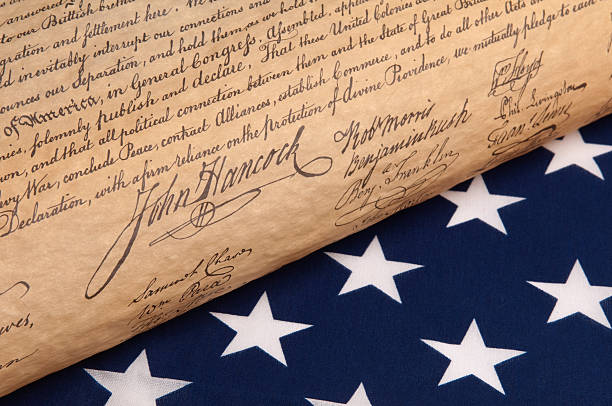 answered
to our British brethren.
gration and Settlement here. We
d inevitably interrupt our connections and
ounces our Separation, and hold them, as we hold
of America, in General Congress, Assembled, appealing
nies, solemnly publish and declare, That these United Colonies are
on, and that all political connection between them and the State of Great Britain
evy War, conclude Peace, contract Alliances, establish Commerce, and to do all other Acts and
Declaration, with a firm reliance on the protection of divine Providence, we mutually pledge to each
John Hancock
Robt Morris
Benjamin Rush
Benj. Franklin
Floyd
Phil. Livingston
Lewis
Samuel Chase
Wm Paca